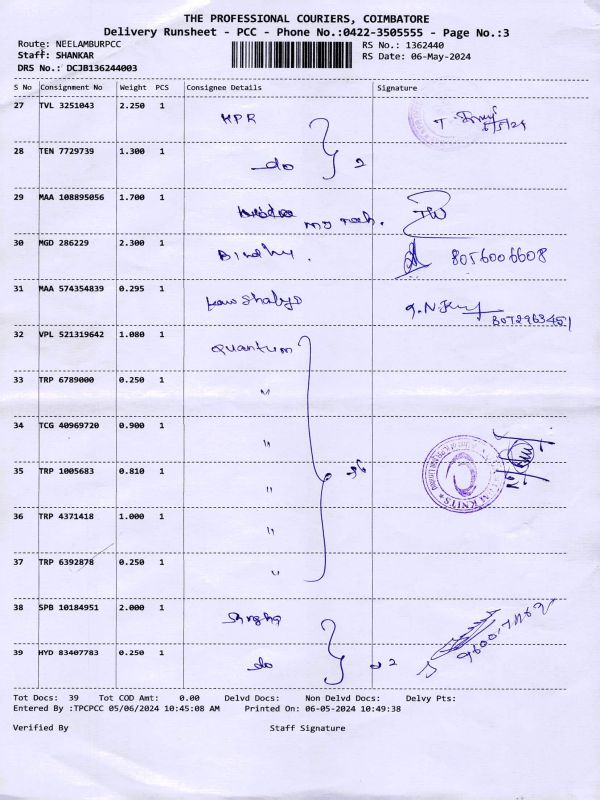 THE PROFESSIONAL COURIERS, COIMBATORE
Delivery Runsheet - PCC - Phone No.:0422-3505555 - Page No.:3
Route: NEELAMBURPCC RS No.: 1362440
Staff: SHANKAR RS Date: 06-May-2024
DRS No.: DCJB136244003
S No Consignment No Weight PCS Consignee Details Signature
27 TVL 3251043 2.250 1
28 TEN 7729739 1.300 1 do 2
29 MAA 108895056 1.700 1
30 MGD 286229 2.300 1 Bindhu. 8056006608
31 MAA 574354839 0.295 1
32 VPL 521319642 1.080 1 Quantum
33 TRP 6789000 0.250 1 "
34 TCG 40969720 0.900 1 "
35 TRP 1005683 0.810 1 "
36 TRP 4371418 1.000 1 "
37 TRP 6392878 0.250 1 "
38 SPB 10184951 2.000 1
39 HYD 83407783 0.250 1 do 2
Tot Docs: 39 Tot COD Amt: 0.00 Delvd Docs: Non Delvd Docs: Delvy Pts:
Entered By :TPCPCC 05/06/2024 10:45:08 AM Printed On: 06-05-2024 10:49:38
Verified By Staff Signature